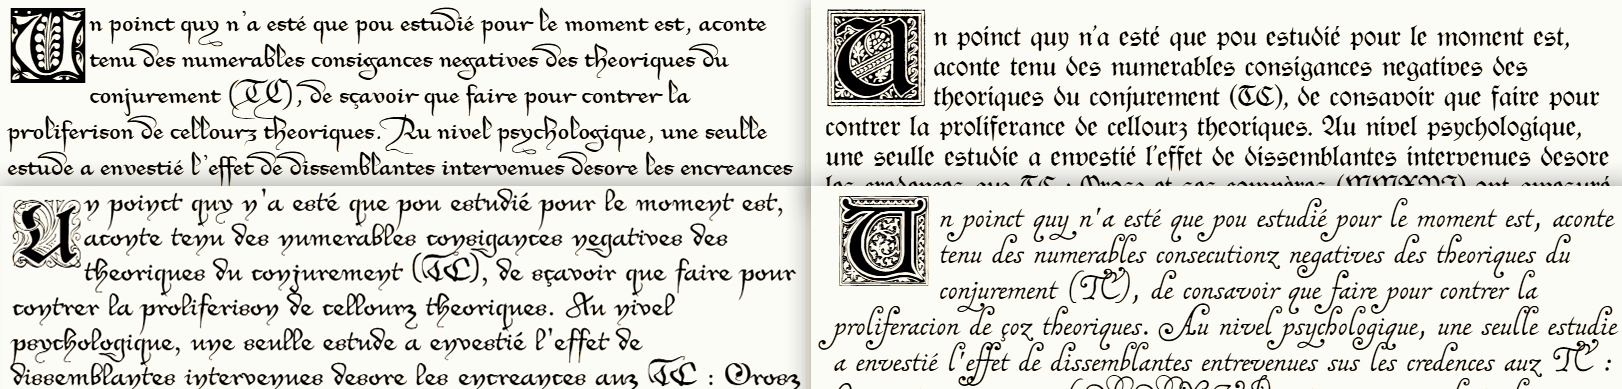 Un poinct quy n'a esté que pou estudié pour le moment est, aconte
tenu des numerables consigances negatives des theoriques du
conjurement (TC), de sçavoir que faire pour contrer la
proliferison de cellourz theoriques. Au nivel psychologique, une seulle
estude a envestié l'effet de dissemblantes intervenues desore les encreances
Un poinct quy n'a esté que pou estudié pour le moment est,
aconte tenu des numerables consigances negatives des
theoriques du conjurement (TC), de consavoir que faire pour
contrer la proliferance de cellourz theoriques. Au nivel psychologique,
une seulle estudie a envestié l'effet de dissemblantes intervenues desore
Un poinct quy n'a esté que pou estudié pour le moment est,
aconte tenu des numerables consigances negatives des
theoriques du conjurement (TC), de sçavoir que faire pour
contrer la proliferison de cellourz theoriques. Au nivel
psychologique, une seulle estude a envestié l'effet de
dissemblantes intervenues desore les encreances auz TC : Orosz
Un poinct quy n'a esté que pou estudié pour le moment est, aconte
tenu des numerables consecutionz negatives des theoriques du
conjurement (TC), de consavoir que faire pour contrer la
proliferacion de çoz theoriques. Au nivel psychologique, une seulle estudie
a envestié l'effet de dissemblantes entrevenues sus les credences auz TC :